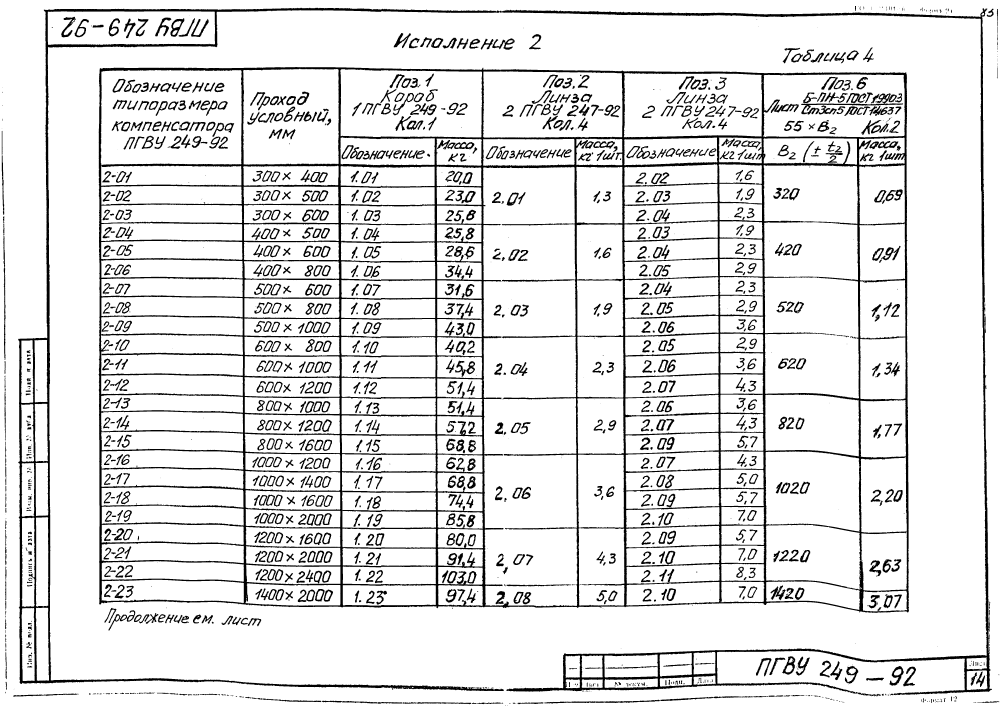 83
ПГВУ 249-92
Исполнение 2
Таблица 4
Обозначение типоразмера компенсатора ПГВУ 249-92
Проход условный, мм
Поз.1 Короб 1 ПГВУ 249-92 Кол.1
Поз.2 Линза 2 ПГВУ 247-92 Кол.4
Поз.3 Линза 2 ПГВУ 247-92 Кол.4
Поз.6 Лист Б-ПН-5 ГОСТ 19903 Ст3сп5 ГОСТ 14637 55 × В2 Кол.2
Обозначение. Масса, кг Обозначение Масса, кг 1шт. Обозначение Масса, кг 1шт В2 (± t2/2) Масса, кг 1шт
2-01 300 × 400 1.01 20,0 2.01 1,3 2.02 1,6 320 0,69
2-02 300 × 500 1.02 23,0 2.03 1,9
2-03 300 × 600 1.03 25,8 2.04 2,3
2-04 400 × 500 1.04 25,8 2.02 1,6 2.03 1,9 420 0,91
2-05 400 × 600 1.05 28,6 2.04 2,3
2-06 400 × 800 1.06 34,4 2.05 2,9
2-07 500 × 600 1.07 31,6 2.03 1,9 2.04 2,3 520 1,12
2-08 500 × 800 1.08 37,4 2.05 2,9
2-09 500 × 1000 1.09 43,0 2.06 3,6
2-10 600 × 800 1.10 40,2 2.04 2,3 2.05 2,9 620 1,34
2-11 600 × 1000 1.11 45,8 2.06 3,6
2-12 600 × 1200 1.12 51,4 2.07 4,3
2-13 800 × 1000 1.13 51,4 2.05 2,9 2.06 3,6 820 1,77
2-14 800 × 1200 1.14 57,2 2.07 4,3
2-15 800 × 1600 1.15 68,8 2.09 5,7
2-16 1000 × 1200 1.16 62,8 2.06 3,6 2.07 4,3 1020 2,20
2-17 1000 × 1400 1.17 68,8 2.08 5,0
2-18 1000 × 1600 1.18 74,4 2.09 5,7
2-19 1000 × 2000 1.19 85,8 2.10 7,0
2-20 1200 × 1600 1.20 80,0 2.07 4,3 2.09 5,7 1220 2,63
2-21 1200 × 2000 1.21 91,4 2.10 7,0
2-22 1200 × 2400 1.22 103,0 2.11 8,3
2-23 1400 × 2000 1.23 97,4 2.08 5,0 2.10 7,0 1420 3,07
Продолжение см. лист
ПГВУ 249-92
Лист
14
Лист № докум. Подп. Дата
Формат 12